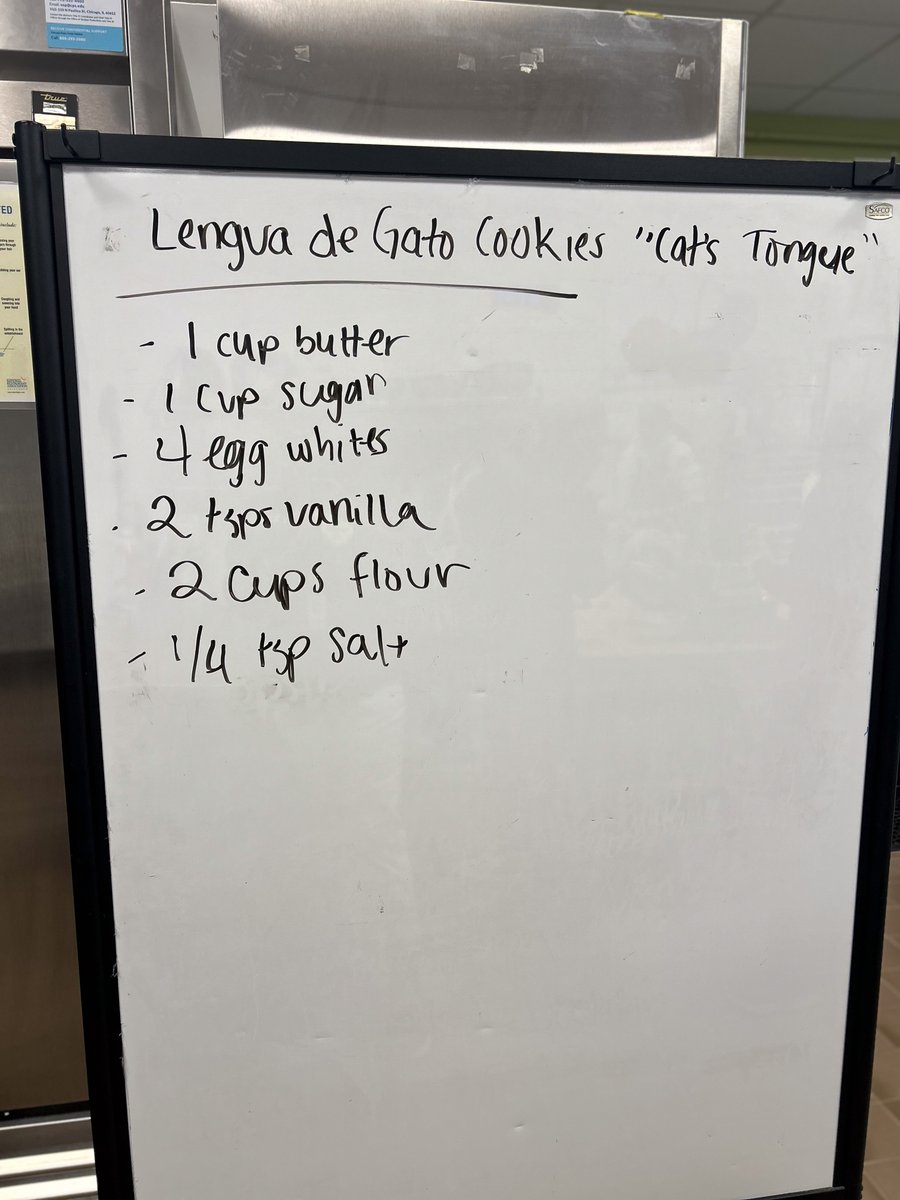 True
SAFCO
Lengua de Gato Cookies "Cat's Tongue"
- 1 cup butter
- 1 cup sugar
- 4 egg whites
- 2 tsps vanilla
- 2 cups flour
- 1/4 tsp salt